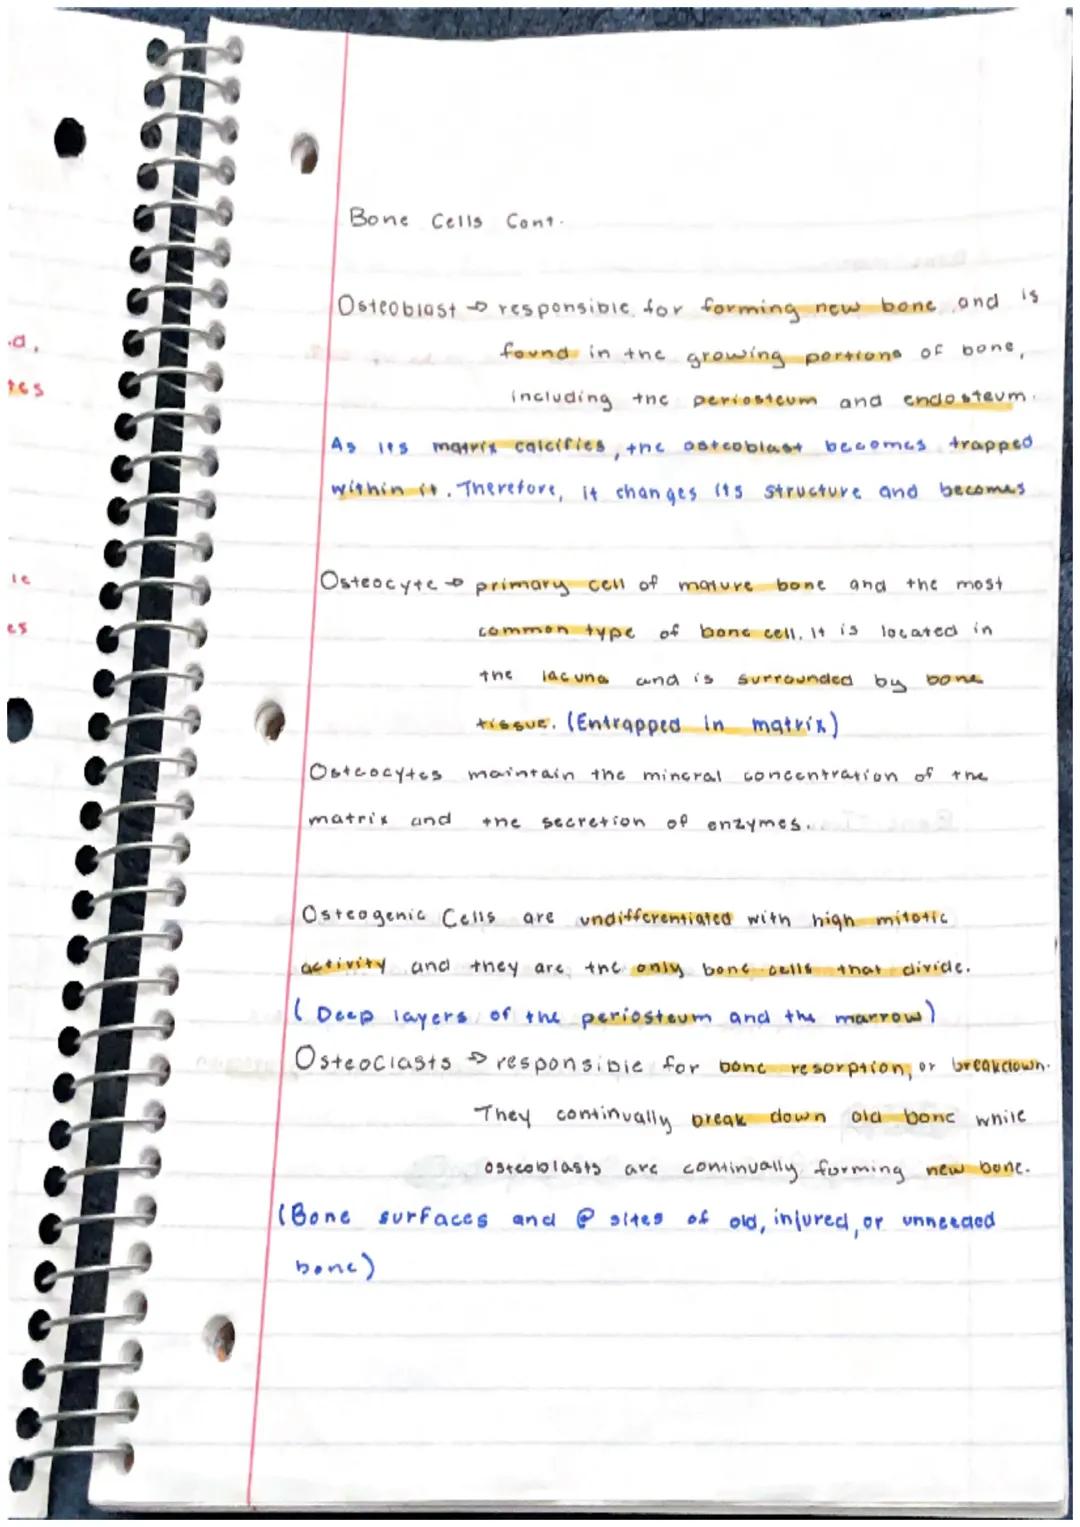 Bone Cells Cont.
Osteoblast → responsible for forming new bone and is
found in the growing portions of bone,
including the periosteum and endosteum.
As its matrix calcifies, the osteoblast becomes trapped
within it. Therefore, it changes its structure and becomes
Osteocyte → primary cell of mature bone and the most
common type of bone cell. It is located in
the lacuna and is surrounded by bone
tissue. (Entrapped in matrix)
Osteocytes maintain the mineral concentration of the
matrix and the secretion of enzymes.
Osteogenic Cells are undifferentiated with high mitotic
activity and they are the only bone cells that divide.
(Deep layers of the periosteum and the marrow)
Osteoclasts → responsible for bone resorption, or breakdown.
They continually break down old bone while
osteoblasts are continually forming new bone.
(Bone surfaces and @ sites of old, injured, or unneeded
bone)